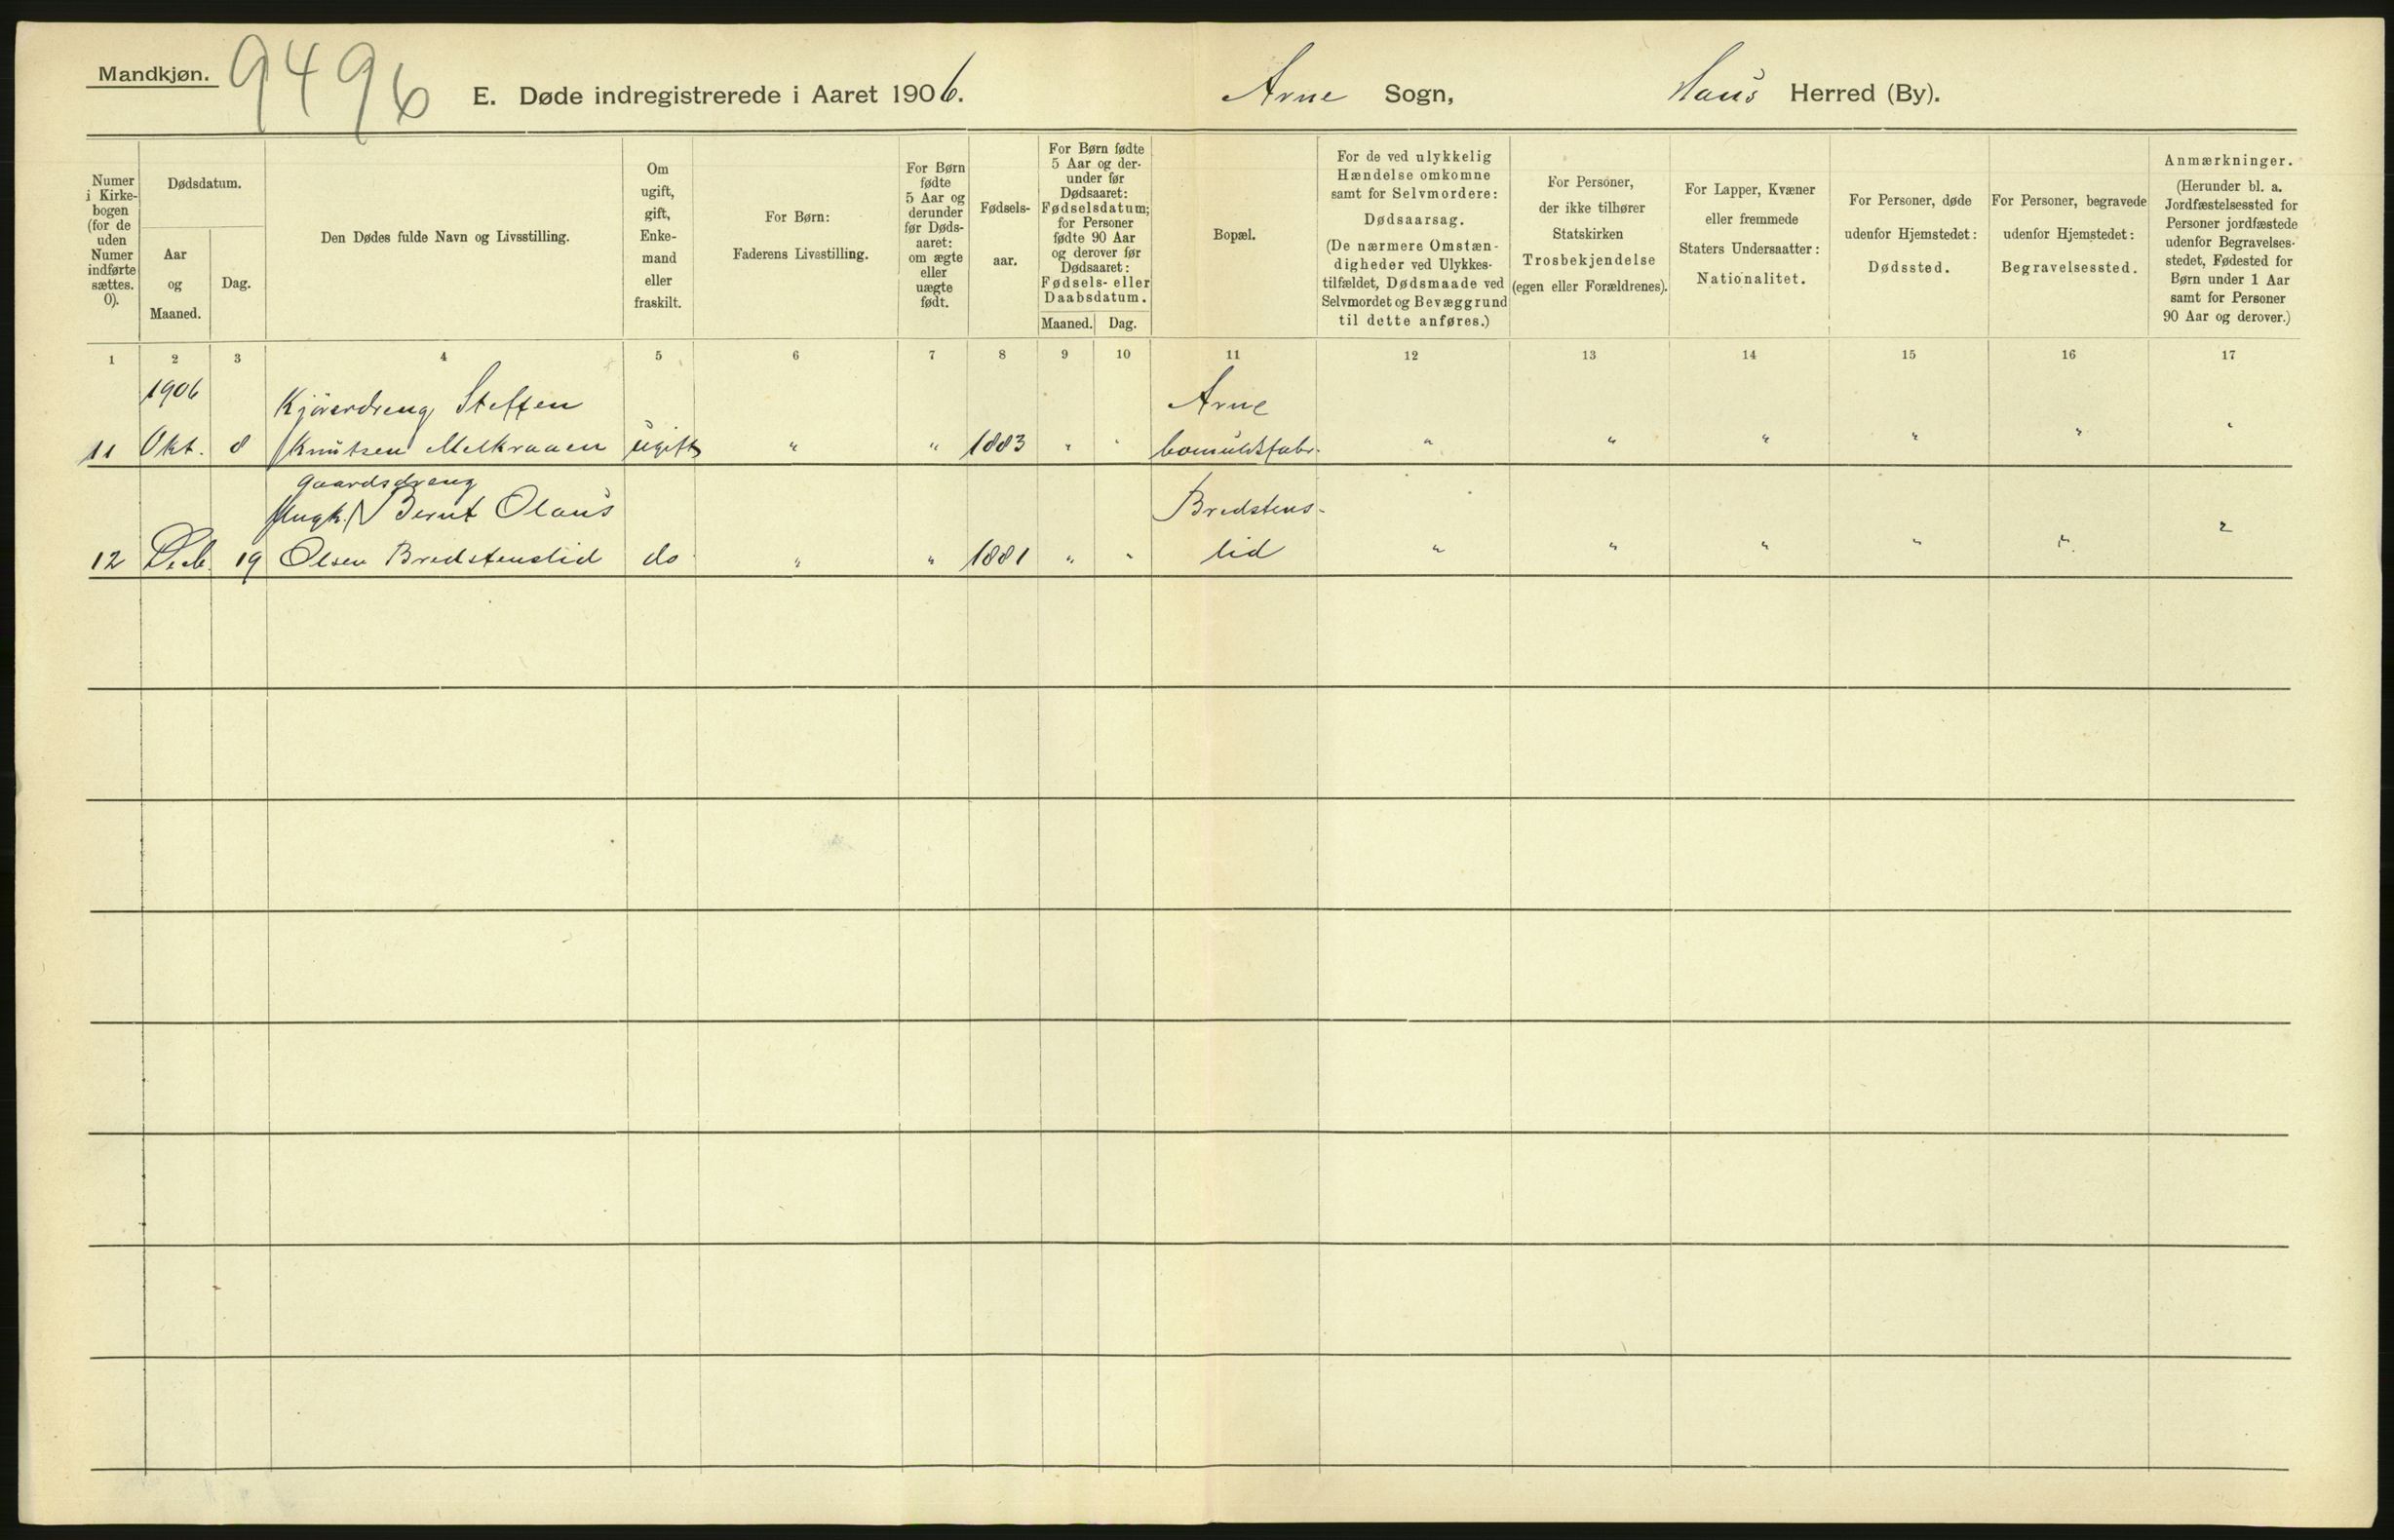 Mandkjøn.
9496
E. Døde indregistrerede i Aaret 1906.
Arne Sogn,
Haus Herred (By).
Numer
i Kirke-
bogen
(for de
uden
Numer
indførte
sættes.
0).
Dødsdatum.
Aar
og
Maaned.
Dag.
Den Dødes fulde Navn og Livsstilling.
Om
ugift,
gift,
Enke-
mand
eller
fraskilt.
For Børn:
Faderens Livsstilling.
For Børn
fødte
5 Aar og
derunder
før Døds-
aaret:
om ægte
eller
uægte
født.
Fødsels-
aar.
For Børn fødte
5 Aar og der-
under før
Dødsaaret:
Fødselsdatum;
for Personer
fødte 90 Aar
og derover før
Dødsaaret:
Fødsels- eller
Daabsdatum.
Maaned. Dag.
Bopæl.
For de ved ulykkelig
Hændelse omkomne
samt for Selvmordere:
Dødsaarsag.
(De nærmere Omstæn-
digheder ved Ulykkes-
tilfældet, Dødsmaade ved
Selvmordet og Bevæggrund
til dette anføres.)
For Personer,
der ikke tilhører
Statskirken
Trosbekjendelse
(egen eller Forældrenes).
For Lapper, Kvæner
eller fremmede
Staters Undersaatter:
Nationalitet.
For Personer, døde
udenfor Hjemstedet:
Dødssted.
For Personer, begravede
udenfor Hjemstedet:
Begravelsessted.
Anmærkninger.
(Herunder bl. a.
Jordfæstelsessted for
Personer jordfæstede
udenfor Begravelses-
stedet, Fødested for
Børn under 1 Aar
samt for Personer
90 Aar og derover.)
1 2 3 4 5 6 7 8 9 10 11 12 13 14 15 16 17
1906 Kjøredreng Steffen Arne
11 Okt. 8 Knutsen Melkraaen ugift " " 1883 " " bomuldsfabr. " " " " " "
Gaardsdreng
Ungk. Bernt Olaus Bredstens-
12 Decb. 19 Olsen Bredstenslid do " " 1881 " " lid " " " " " "